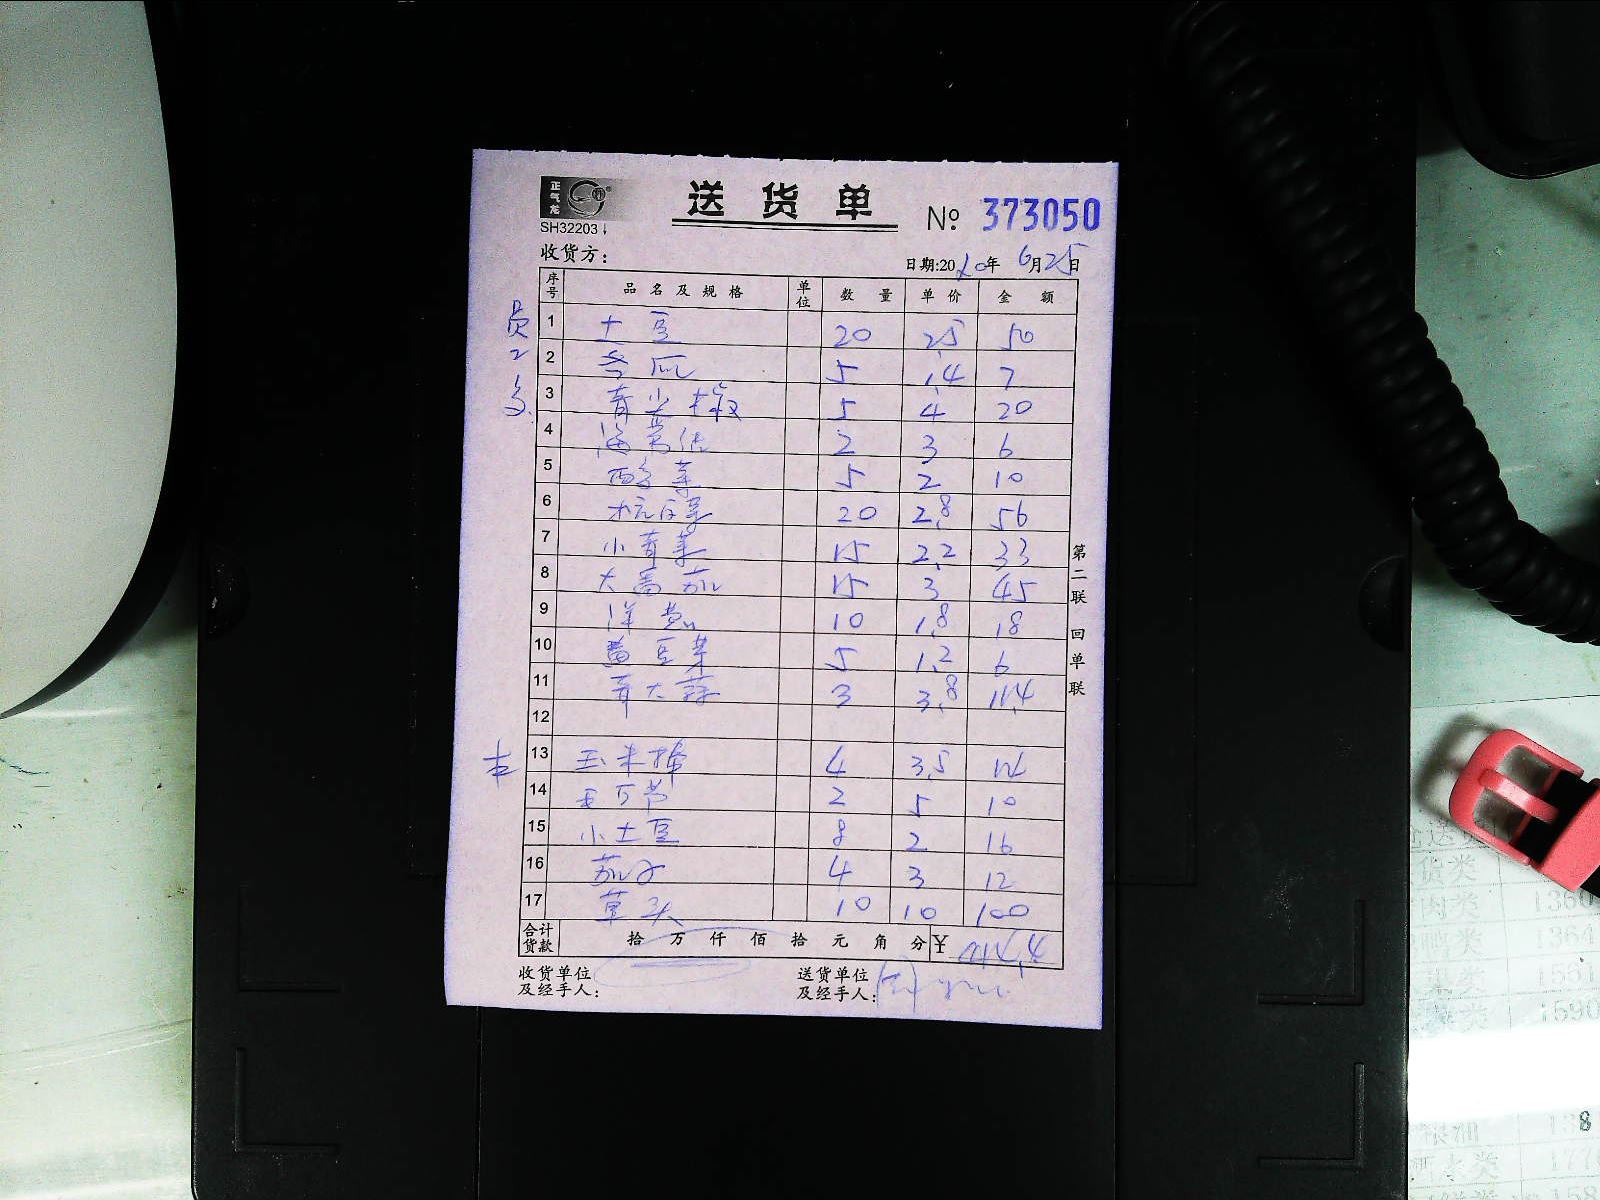 正气龙
SH32203
送货单
№ 373050
收货方:
日期:2020年 6月25日
序号 品名及规格 单位 数量 单价 金额
员工
1 土豆 20 2.5 50
2 冬瓜 5 1.4 7
3 青尖椒 5 4 20
4 2 3 6
5 5 2 10
6 杭白菜 20 2.8 56
7 小青菜 15 2.2 33
8 大番茄 15 3 45
9 洋葱 10 1.8 18
10 黄豆芽 5 1.2 6
11 青大蒜 3 3.8 11.4
12
13 玉米棒 4 3.5 14
14 2 5 10
15 小土豆 8 2 16
16 茄子 4 3 12
17 草头 10 10 100
合计货款 拾 万 仟 佰 拾 元 角 分 ¥ 414.4
收货单位及经手人:
送货单位及经手人:
第二联 回单联